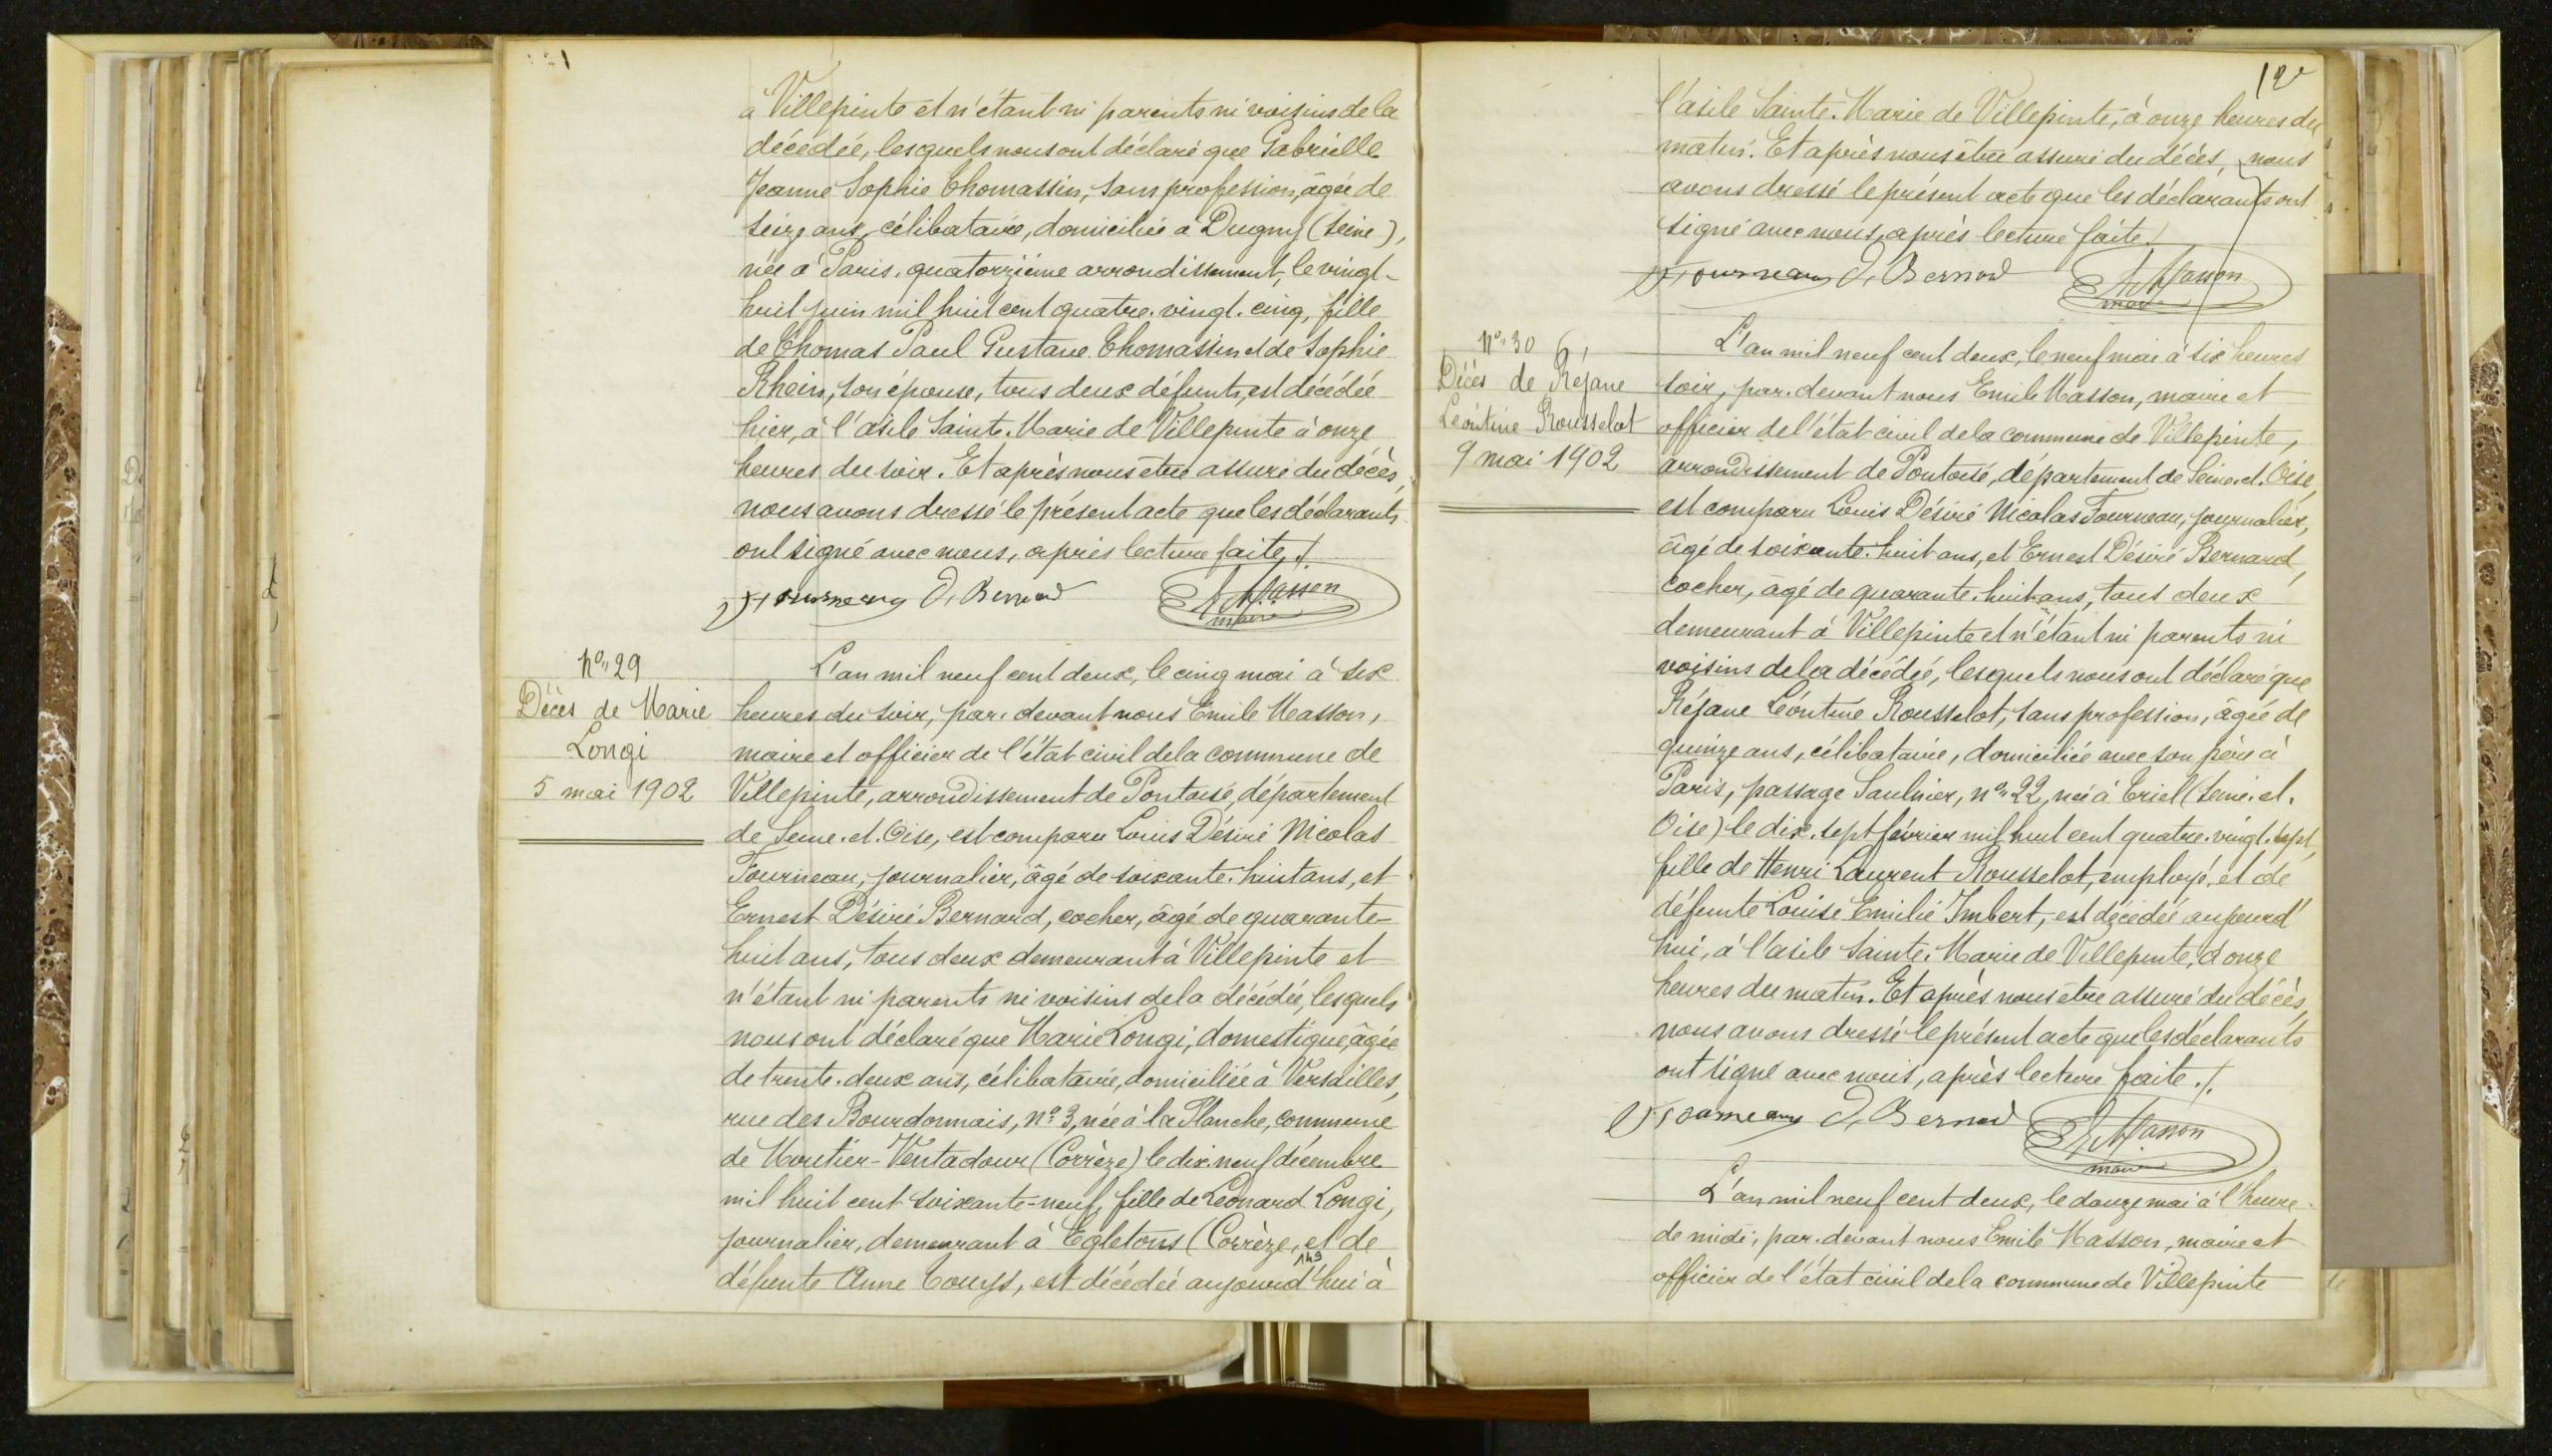 à Villepinte et n'étant ni parents ni voisins de la
décédée, lesquels nous ont déclaré que Gabrielle
Jeanne Sophie Thomassin, sans profession, âgée de
seize ans, célibataire, domiciliée à Dugny (Seine),
née à Paris, quatorzième arrondissement, le vingt-
huit juin mil huit cent quatre-vingt-cinq, fille
de Thomas Paul Gustave Thomassin et de Sophie
Rhein, son épouse, tous deux défunts, est décédée
hier, à l'asile Sainte-Marie de Villepinte à onze
heures du soir. Et après nous être assuré du décès,
nous avons dressé le présent acte que les déclarants
ont signé avec nous, après lecture faite./.
Fourneau D. Bernard E. Masson
maire
No 29
Décès de Marie
Longi
5 mai 1902
L'an mil neuf cent deux, le cinq mai à six
heures du soir, par-devant nous Emile Masson,
maire et officier de l'état civil de la commune de
Villepinte, arrondissement de Pontoise, département
de Seine-et-Oise, est comparu Louis Désiré Nicolas
Fourneau, journalier, âgé de soixante-huit ans, et
Ernest Désiré Bernard, cocher, âgé de quarante-
huit ans, tous deux demeurant à Villepinte et
n'étant ni parents ni voisins de la décédée, lesquels
nous ont déclaré que Marie Longi, domestique, âgée
de trente-deux ans, célibataire, domiciliée à Versailles,
rue des Bourdonnais, no 3, née à la Planche, commune
de Moutier-Ventadour (Corrèze) le dix-neuf décembre
mil huit cent soixante-neuf, fille de Léonard Longi,
journalier, demeurant à Egletons (Corrèze, et de
défunte Anne, est décédée aujourd'hui à
149
12
l'asile Sainte-Marie de Villepinte, à onze heures du
matin. Et après nous être assuré du décès, nous
avons dressé le présent acte que les déclarants ont
signé avec nous, après lecture faite./.
Fourneau D. Bernard E. Masson
maire
No 30
Décès de Réjane
Léontine Rousselot
9 mai 1902
L'an mil neuf cent deux, le neuf mai à six heures
soir, par-devant nous Emile Masson, maire et
officier de l'état civil de la commune de Villepinte,
arrondissement de Pontoise, département de Seine-et-Oise,
est comparu Louis Désiré Nicolas Fourneau, journalier,
âgé de soixante-huit ans, et Ernest Désiré Bernard,
cocher, âgé de quarante-huit ans, tous deux
demeurant à Villepinte et n'étant ni parents ni
voisins de la décédée, lesquels nous ont déclaré que
Réjane Léontine Rousselot, sans profession, âgée de
quinze ans, célibataire, domiciliée avec son père à
Paris, passage Saulnier, no 22, née à Triel (Seine-et-
Oise) le dix-sept février mil huit cent quatre-vingt-sept,
fille de Henri Laurent Rousselot, employé, et de
défunte Louise Emilie Imbert, est décédée aujourd'
hui, à l'asile Sainte-Marie de Villepinte, à onze
heures du matin. Et après nous être assuré du décès,
nous avons dressé le présent acte que les déclarants
ont signé avec nous, après lecture faite./.
Fourneau D. Bernard E. Masson
maire
L'an mil neuf cent deux, le douze mai à l'heure
de midi, par-devant nous Emile Masson, maire et
officier de l'état civil de la commune de Villepinte